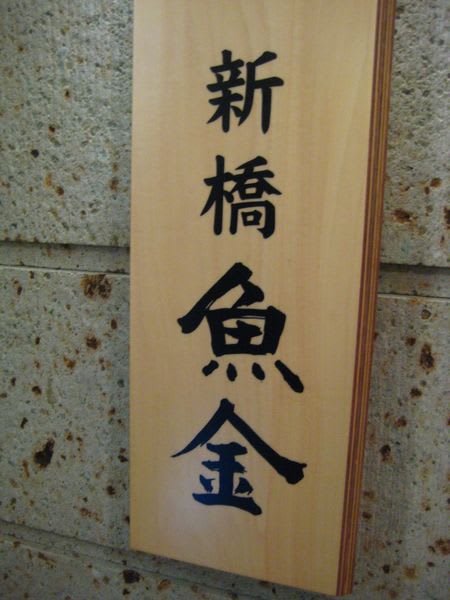 新橋魚金